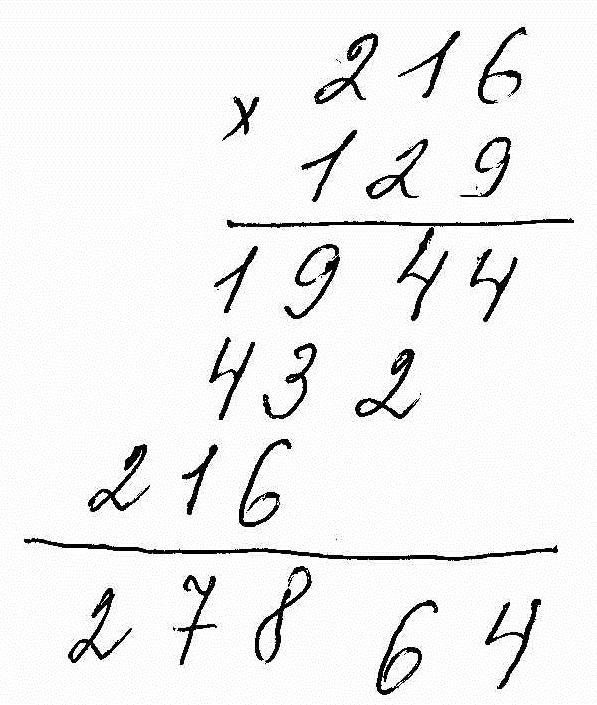 216
x
129
1944
432
216
27864